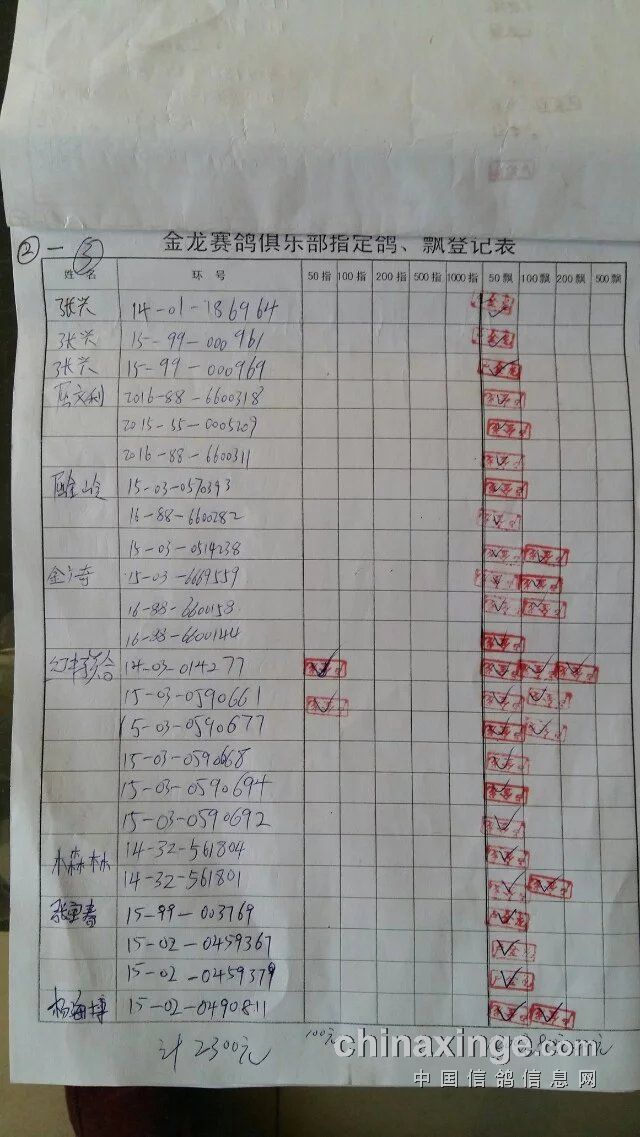 ② 一 ③
金龙赛鸽俱乐部指定鸽、飘登记表
姓名 环号 50指 100指 200指 500指 1000指 50飘 100飘 200飘 500飘
张兴 14-01-186964
张兴 15-99-000961
张兴 15-99-000969
2016-88-6600318
2015-55-0005209
2016-88-6600311
15-03-0570393
16-88-6600282
15-03-0514238
15-03-6669559
16-88-6600158
16-88-6600144
14-03-014277
15-03-0590661
15-03-0590677
15-03-0590668
15-03-0590694
15-03-0590692
木森林 14-32-561804
14-32-561801
15-99-003769
15-02-0459367
15-02-0459379
杨海博 15-02-0490811
计2300元 100元
chinaxinge.com
中国信鸽信息网